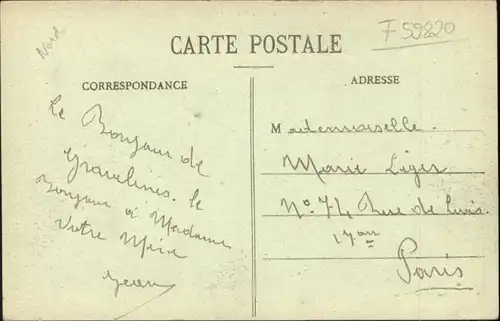 Nord
F 59820
CARTE POSTALE
CORRESPONDANCE
ADRESSE
Le Bonjour de
Gravelines. le
Bonjour à Madame
Votre Mère
Jean
Mademoiselle.
Marie Liger
N° 74 Rue de
17em
Paris